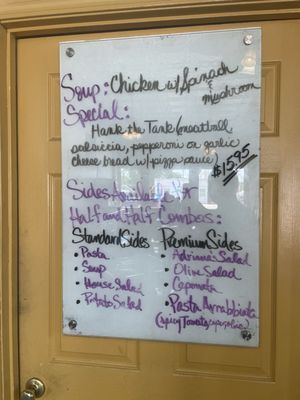 Soup: Chicken w/ Spinach
& mushroom
Special:
Hank the Tank (meatball,
salsiccia, pepperoni on garlic
cheese bread w/ pizza sauce)
$15.95
Sides Available for
Half and Half Combos:
Standard Sides
• Pasta
• Soup
• House Salad
• Potato Salad
Premium Sides
• Adriana's Salad
• Olive Salad
• Caponata
• Pasta Arrabbiata
(spicy Tomato